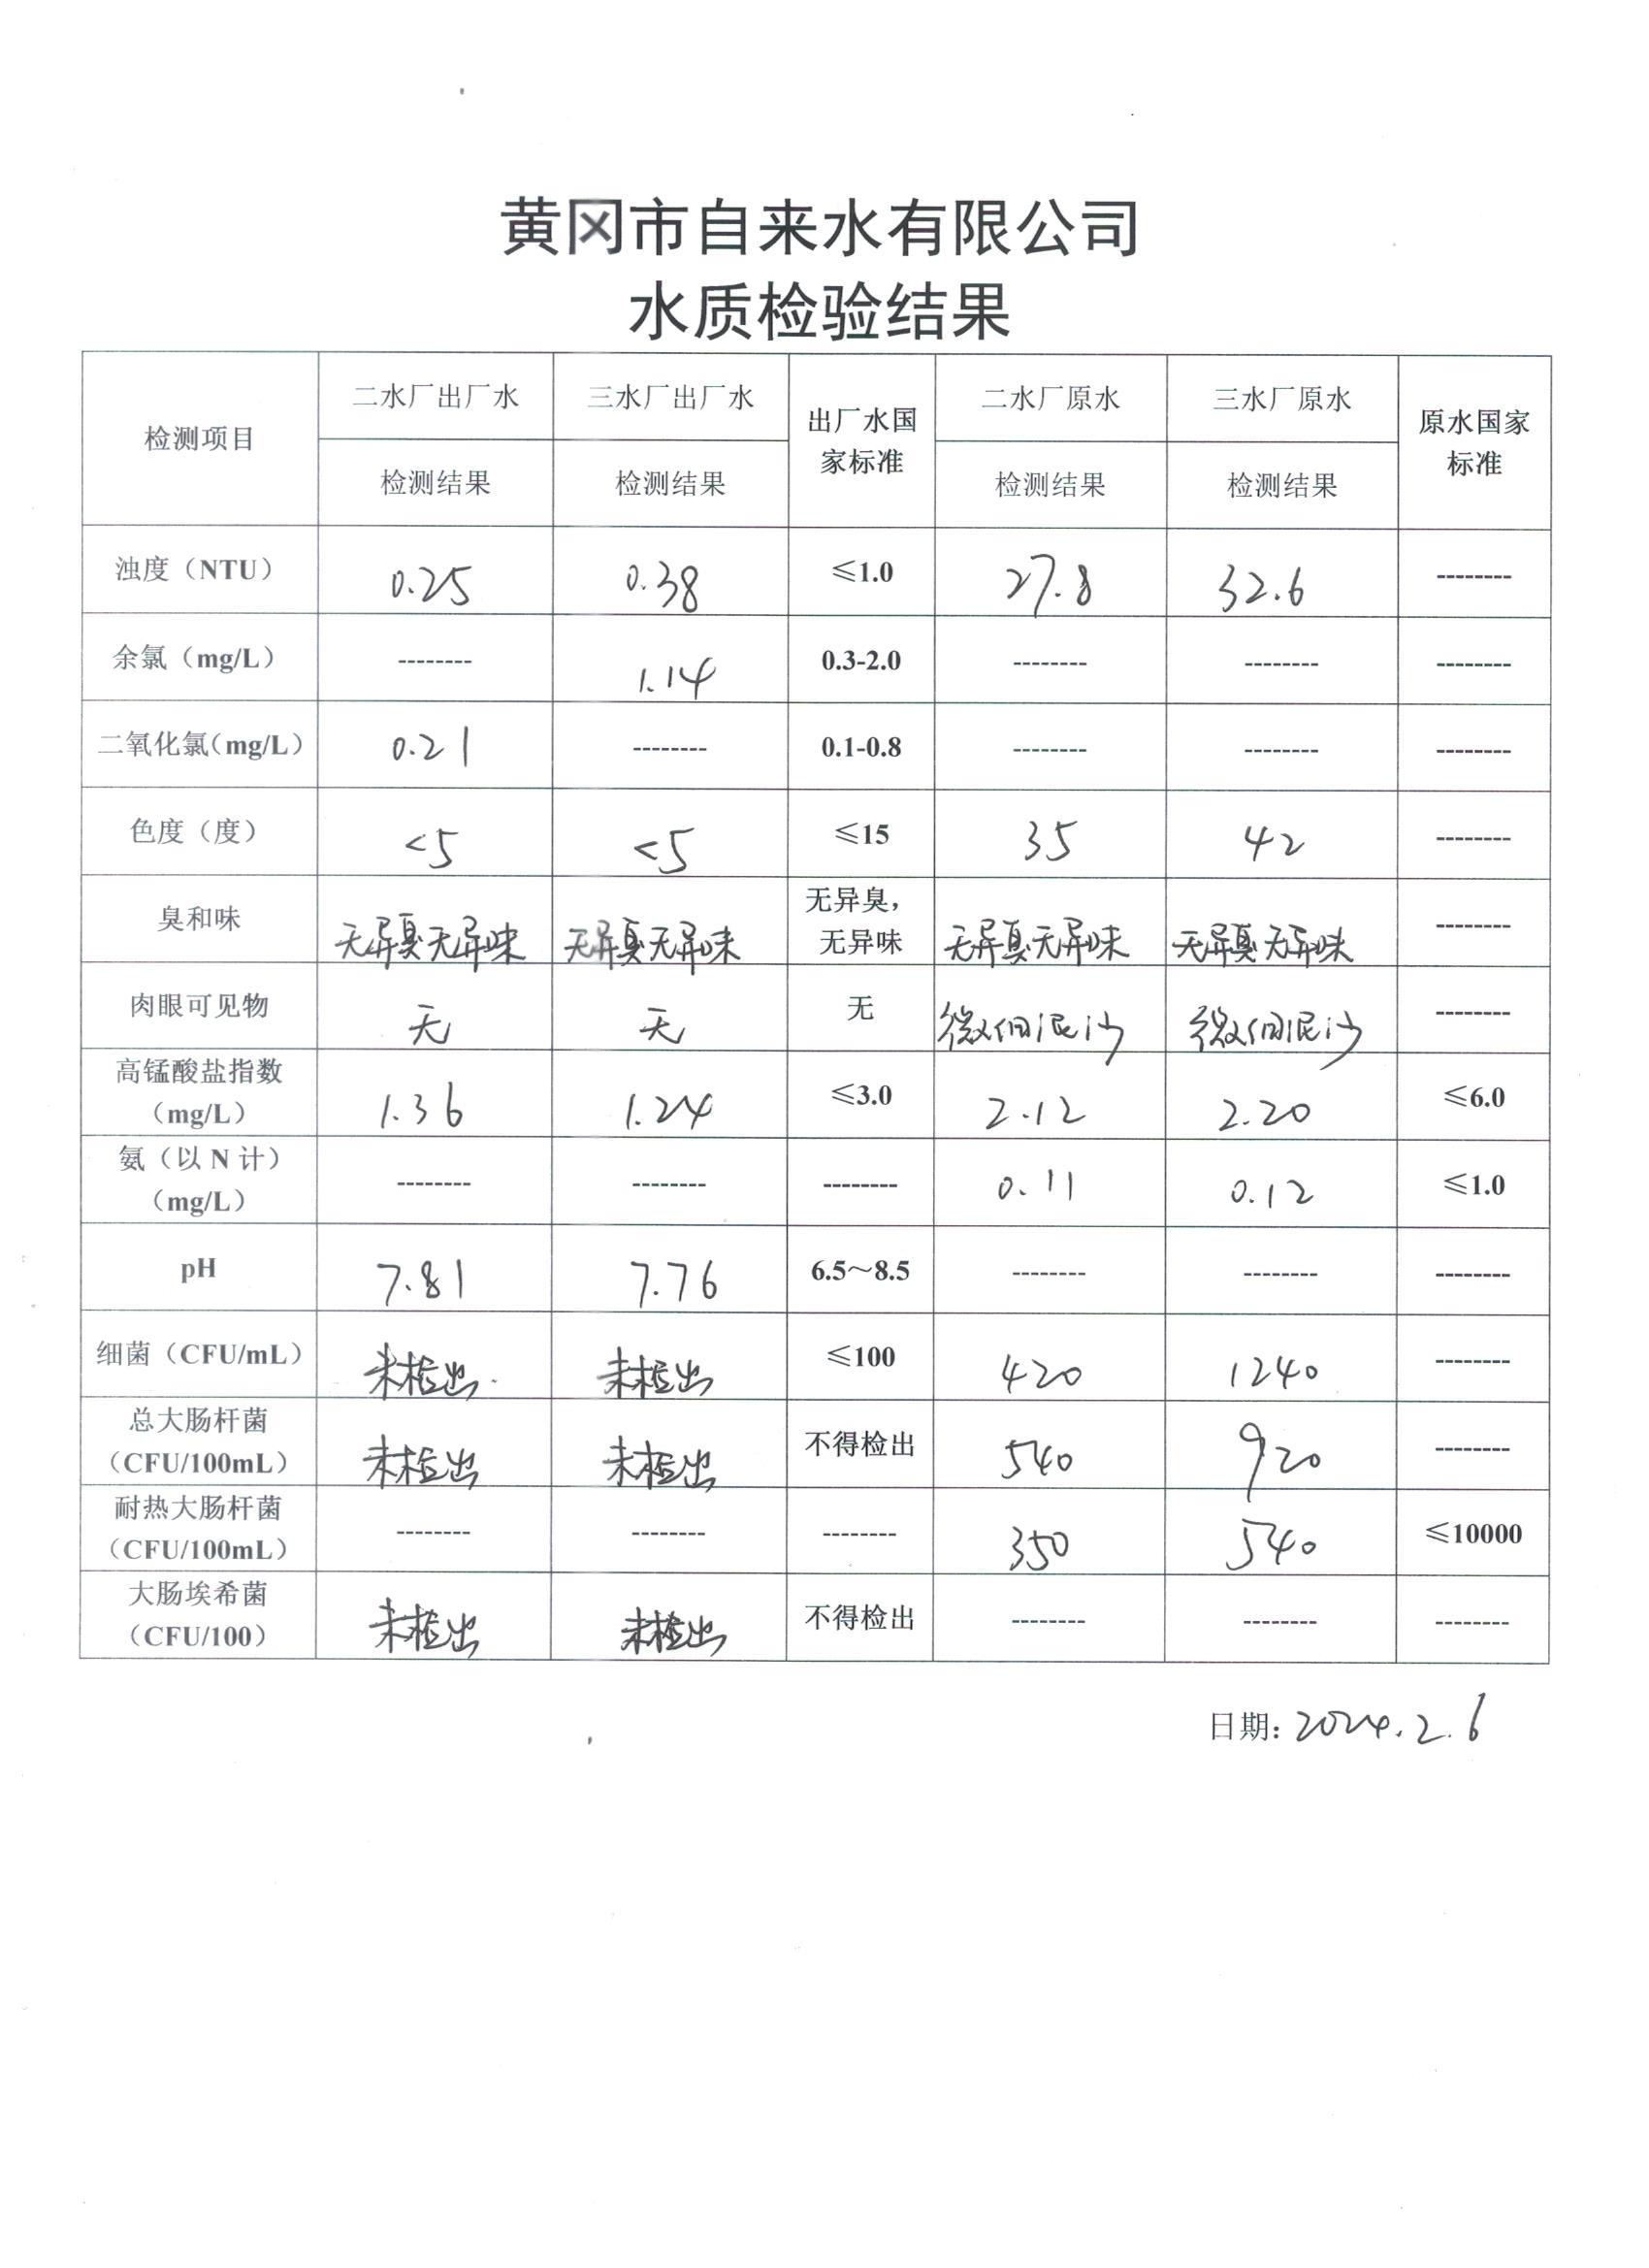 黄冈市自来水有限公司
水质检验结果
检测项目 二水厂出厂水 三水厂出厂水 出厂水国家标准 二水厂原水 三水厂原水 原水国家标准
检测结果 检测结果 检测结果 检测结果
浊度（NTU） 0.25 0.38 ≤1.0 27.8 32.6 --------
余氯（mg/L） -------- 1.14 0.3-2.0 -------- -------- --------
二氧化氯（mg/L） 0.21 -------- 0.1-0.8 -------- -------- --------
色度（度） <5 <5 ≤15 35 42 --------
臭和味 无异臭无异味 无异臭无异味 无异臭，无异味 无异臭无异味 无异臭无异味 --------
肉眼可见物 无 无 无 微细泥沙 微细泥沙 --------
高锰酸盐指数（mg/L） 1.36 1.24 ≤3.0 2.12 2.20 ≤6.0
氨（以N计）（mg/L） -------- -------- -------- 0.11 0.12 ≤1.0
pH 7.81 7.76 6.5～8.5 -------- -------- --------
细菌（CFU/mL） 未检出 未检出 ≤100 420 1240 --------
总大肠杆菌（CFU/100mL） 未检出 未检出 不得检出 540 920 --------
耐热大肠杆菌（CFU/100mL） -------- -------- -------- 350 540 ≤10000
大肠埃希菌（CFU/100） 未检出 未检出 不得检出 -------- -------- --------
日期: 2024.2.6